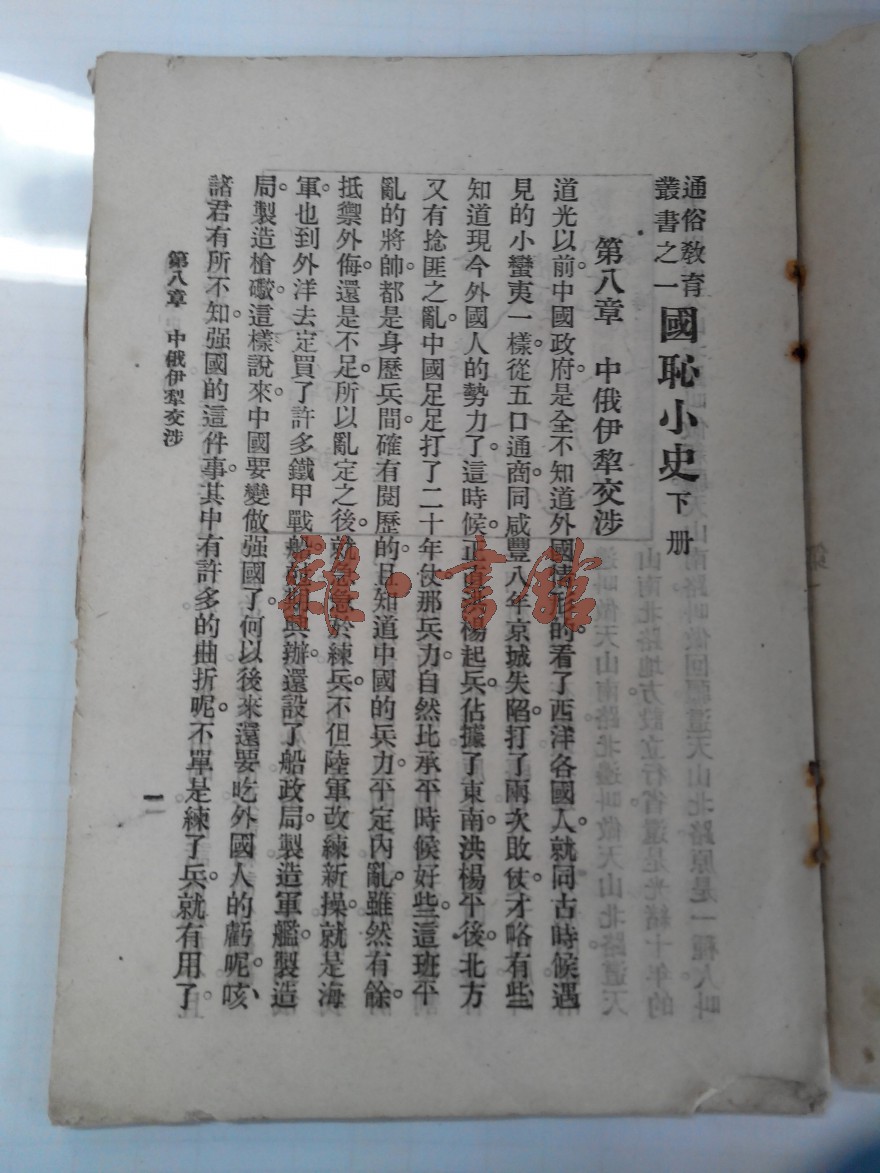 通俗教育
叢書之一
國恥小史 下册
第八章 中俄伊犂交涉
道光以前中國政府是全不知道外國情形的。看了西洋各國人就同古時候遇
見的小蠻夷一樣。從五口通商。同咸豐八年京城失陷。打了兩次敗仗。才略有些
知道現今外國人的勢力了。這時候。正直洪楊起兵。佔據了東南。洪楊平後。北方
又有捻匪之亂。中國足足打了二十年仗。那兵力自然比承平時候好些。這班平
亂的將帥都是身歷兵間。確有閱歷的。且知道中國的兵力。平定內亂。雖然有餘。
抵禦外侮。還是不足。所以亂定之後。就急急於練兵。不但陸軍改練新操。就是海
軍。也到外洋去定買了許多鐵甲戰船。剋期興辦。還設了船政局。製造軍艦。製造
局。製造槍礮。這樣說來。中國要變做强國了。何以後來還要吃外國人的虧呢。咳、
諸君有所不知。强國的這件事。其中有許多的曲折呢。不單是練了兵。就有用了
第八章 中俄伊犂交涉
一
雜·書館